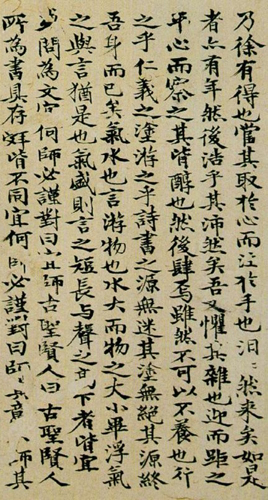 乃徐有得也當其取於心而注於手也汩〻然來矣如是
者亦有年然後浩乎其沛然矣吾又懼其雜也迎而距之
平心而察之其皆醇也然後肆焉雖然不可以不養也行
之乎仁義之塗游之乎詩書之源無迷其塗無絕其源終
吾身而已矣氣水也言游物也水大而物之大小畢浮氣
之與言猶是也氣盛則言之短長與聲之下者皆宜
問為文宜何師必謹對曰宜師古聖賢人曰古聖賢人
所為書具存辭皆不同宜何師必謹對曰師意師其